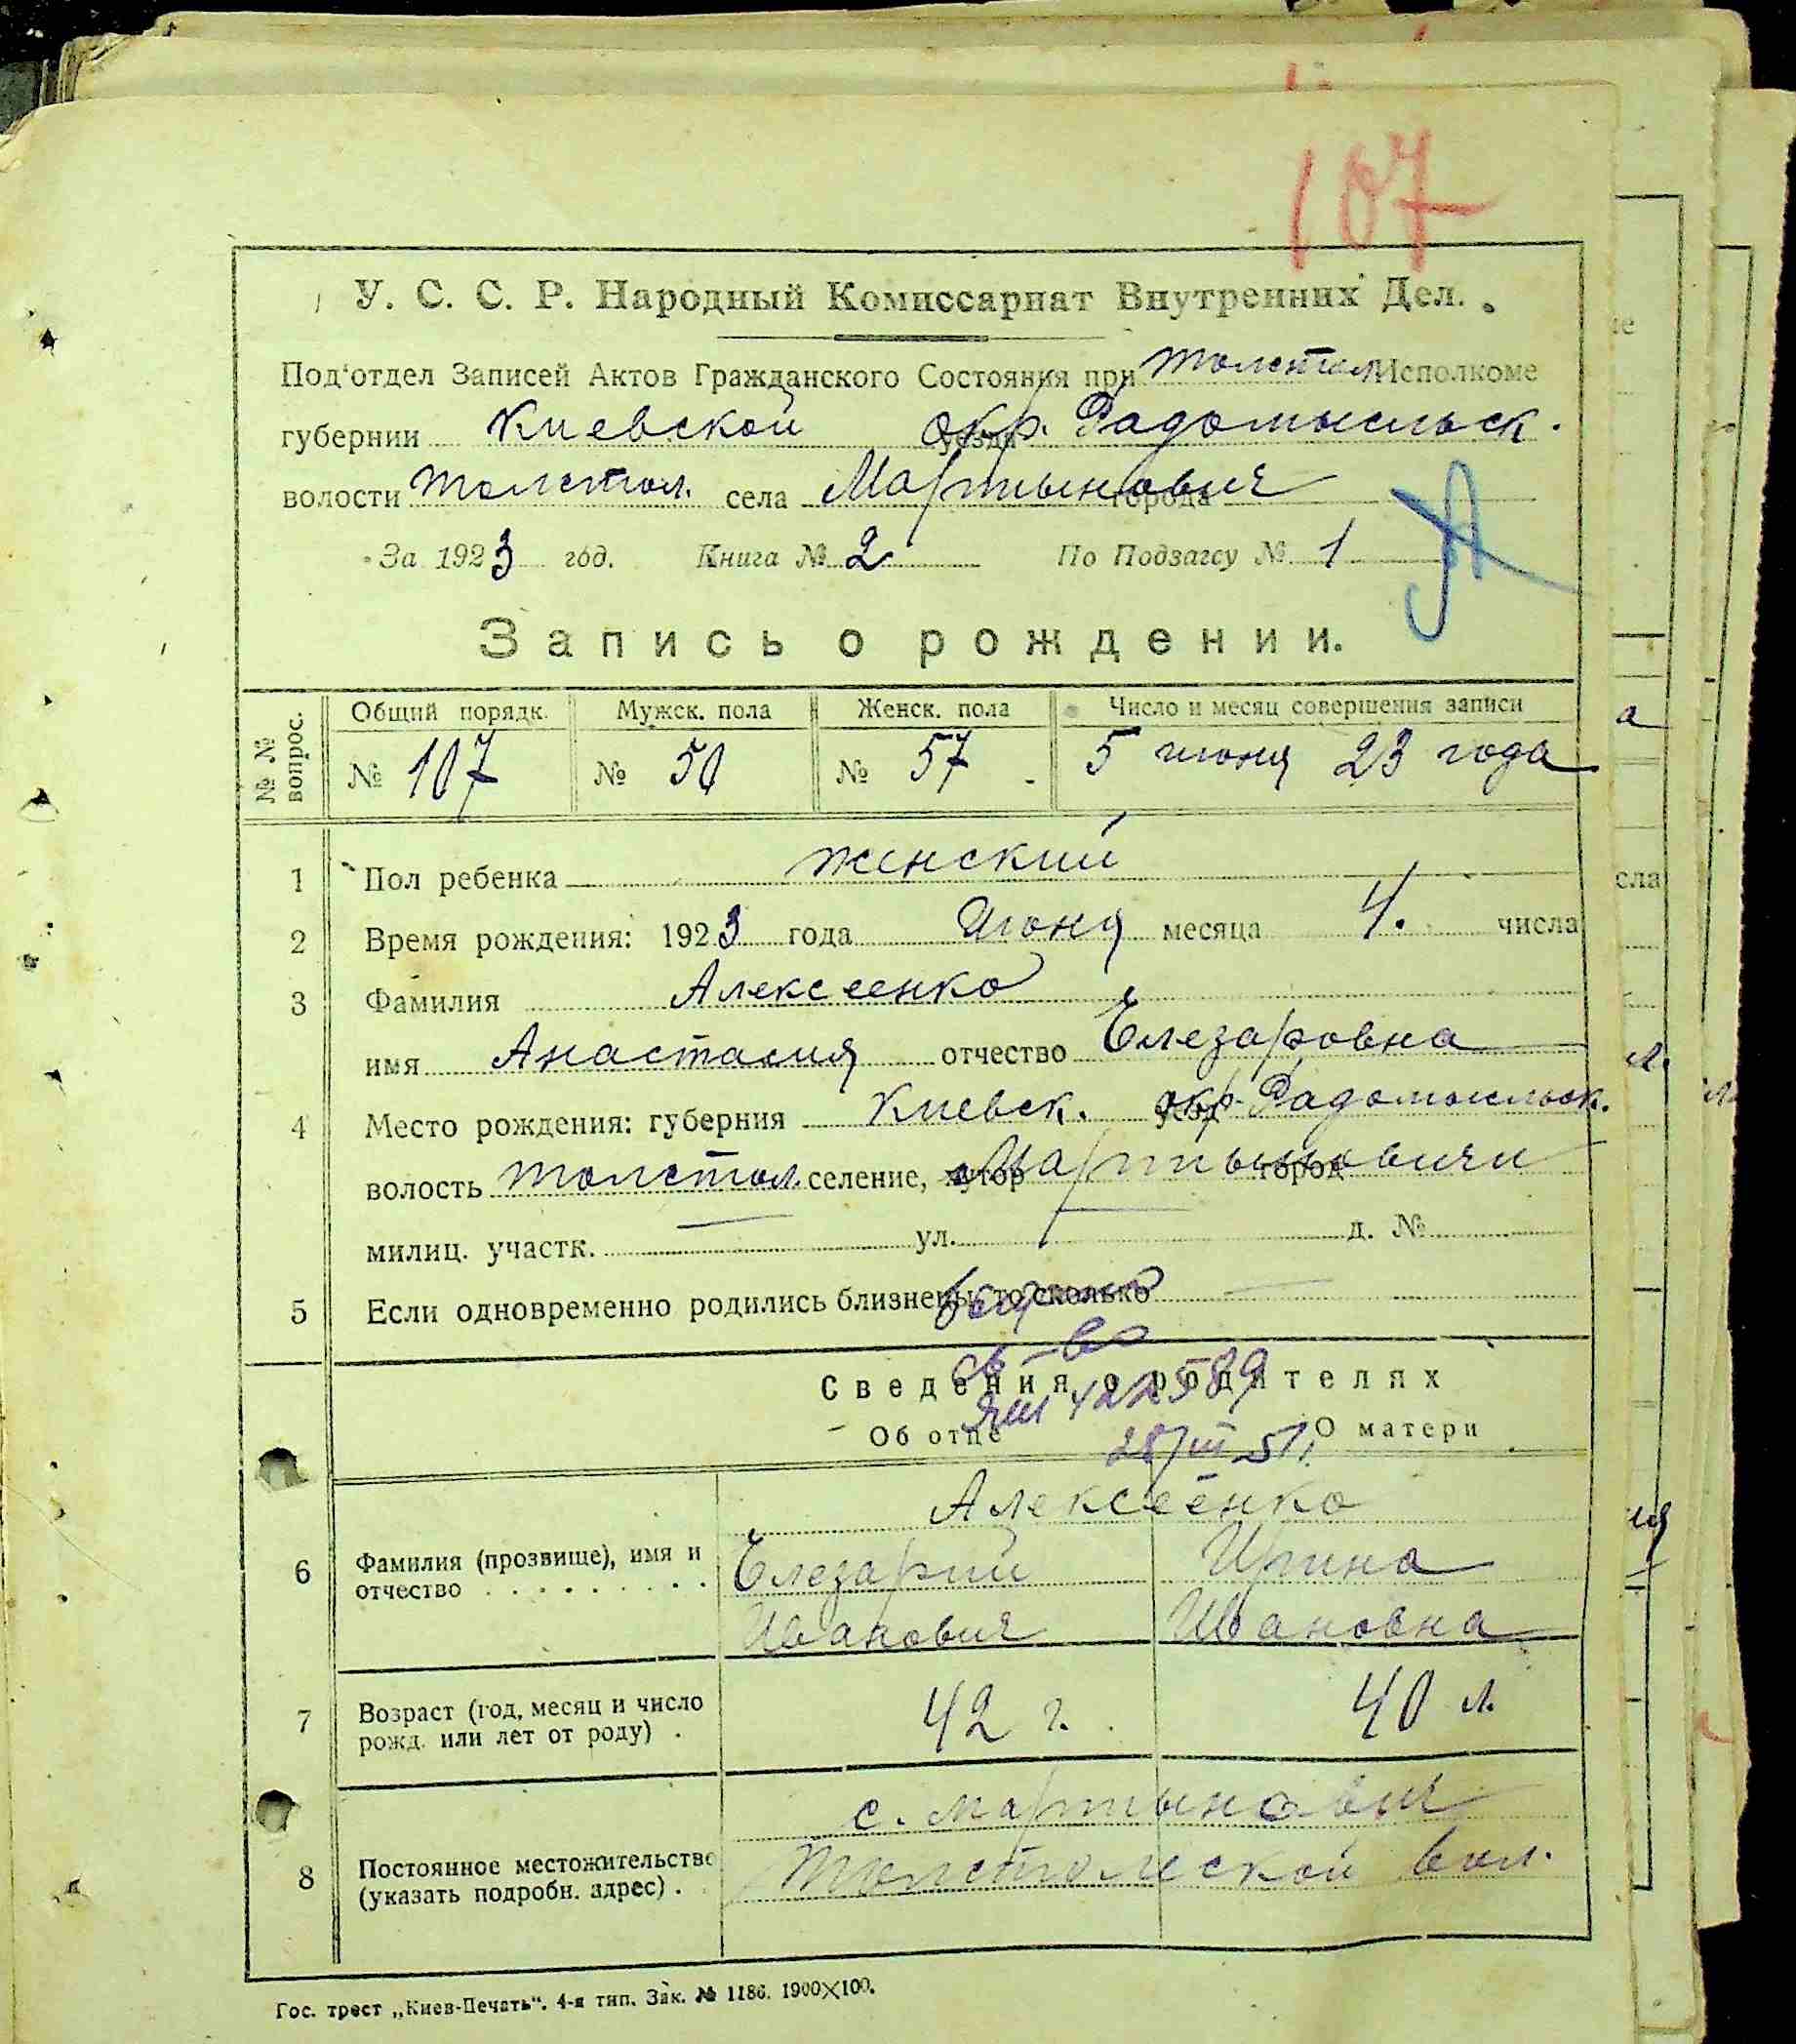 107
У. С. С. Р. Народный Комиссариат Внутренних Дел.
Под'отдел Записей Актов Гражданского Состояния при Толстол. Исполкоме
губернии Киевской уезда окр. Радомысльск.
волости Толстол. села Мартынович города
За 1923 год. Книга № 2 По Подзагсу № 1
Запись о рождении.
№ № вопрос.
Общий порядк. Мужск. пола Женск. пола Число и месяц совершения записи
№ 107 № 50 № 57 5 июня 23 года
1 Пол ребенка женский
2 Время рождения: 1923 года Июня месяца 4. числа
3 Фамилия Алексеенко
имя Анастасия отчество Елезаровна
4 Место рождения: губерния Киевск. уезд окр. Радомысльск.
волость Толстол. селение, хутор Мартыновичи город
милиц. участк. — ул. — д. №
5 Если одновременно родились близнецы, то сколько —
св-во
422589
Сведения о родителях
28/III 51г.
Об отце О матери
Алексеенко
6 Фамилия (прозвище), имя и отчество Елезарий Ирина
Иванович Ивановна
7 Возраст (год, месяц и число рожд. или лет от роду) 42 г. 40 л.
с. Мартынович
8 Постоянное местожительство (указать подробн. адрес) Толстолеской вол.
Гос. трест „Киев-Печать“. 4-я тип. Зак. № 1186. 1900×100.